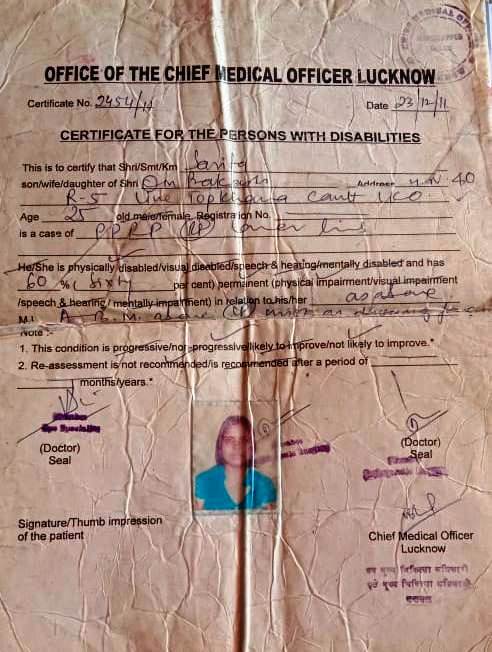 OFFICE OF THE CHIEF MEDICAL OFFICER LUCKNOW
Certificate No. 2454/11 Date 23/12/11
CERTIFICATE FOR THE PERSONS WITH DISABILITIES
This is to certify that Shri/Smt/Km Sarita
son/wife/daughter of Shri Om Prakash Address H.N 40
R-5 Line Topkhana Cantt LKO
Age 25 old male/female. Registration No.
is a case of P.P.R.P (R) lower limb
He/She is physically disabled/visual disabled/speech & hearing/mentally disabled and has
60 % (Sixty per cent) permanent (physical impairment/visual impairment
/speech & hearing / mentally impairment) in relation to his/her as above
M.I. A B.M. above
Note :-
1. This condition is progressive/non-progressive/likely to improve/not likely to improve.*
2. Re-assessment is not recommended/is recommended after a period of
months/years.*
(Doctor)
Seal
(Doctor)
Seal
Signature/Thumb impression
of the patient
Chief Medical Officer
Lucknow